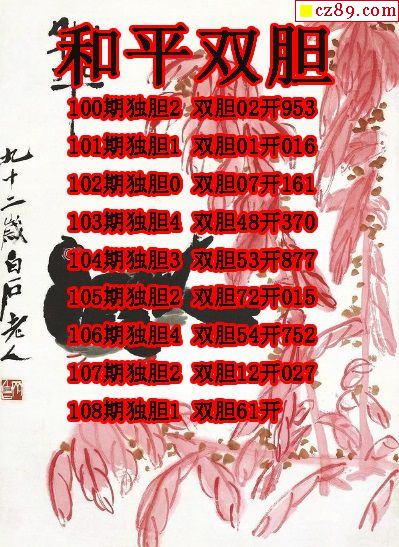 cz89.com
和平双胆
100期独胆2 双胆02开953
101期独胆1 双胆01开016
102期独胆0 双胆07开161
103期独胆4 双胆48开370
104期独胆3 双胆53开877
105期独胆2 双胆72开015
106期独胆4 双胆54开752
107期独胆2 双胆12开027
108期独胆1 双胆61开
九十二岁白石老人